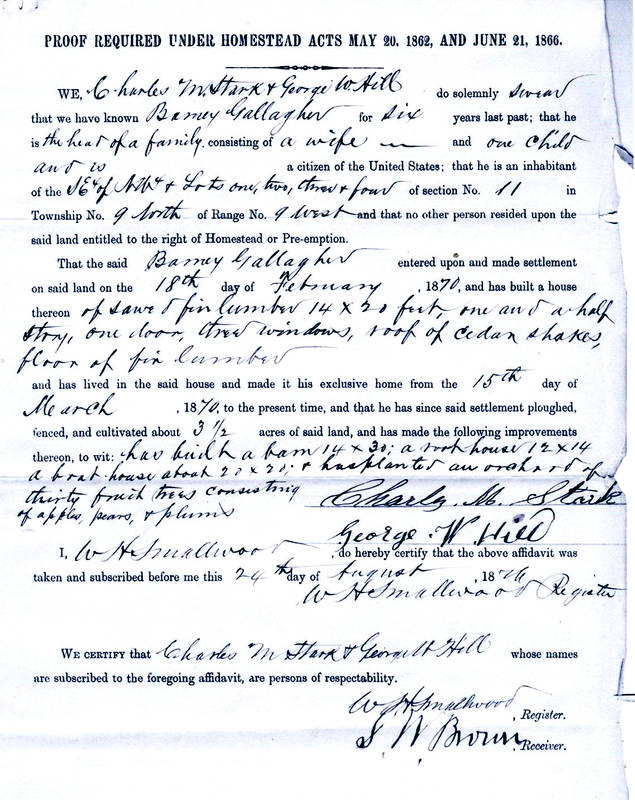 PROOF REQUIRED UNDER HOMESTEAD ACTS MAY 20, 1862, AND JUNE 21, 1866.
WE, Charles M Stark & George W Hill do solemnly swear
that we have known Barney Gallagher for six years last past; that he
is the head of a family consisting of a wife and one child
and is a citizen of the United States; that he is an inhabitant
of the SE4 of NW4 & Lots one, two, three & four of section No. 11 in
Township No. 9 North of Range No. 9 West and that no other person resided upon the
said land entitled to the right of Homestead or Pre-emption.
That the said Barney Gallagher entered upon and made settlement
on said land on the 18th day of February, 1870, and has built a house
thereon of sawed fir lumber 14 x 20 feet, one and a half
story, one door, three windows, roof of cedar shakes,
floor of fir lumber
and has lived in the said house and made it his exclusive home from the 15th day of
March, 1870, to the present time, and that he has since said settlement ploughed,
fenced, and cultivated about 3 1/2 acres of said land, and has made the following improvements
thereon, to wit: has built a barn 14 x 30; a root house 12 x 14
a boat house about 20 x 20; & has planted an orchard of
thirty fruit trees consisting
of apples, pears, & plums
Charly M. Stark
George W Hill
I, W H Smallwood, do hereby certify that the above affidavit was
taken and subscribed before me this 24th day of August, 18
W H Smallwood Register
WE CERTIFY that Charles M Stark & George W Hill whose names
are subscribed to the foregoing affidavit, are persons of respectability.
W H Smallwood, Register.
S W Brown, Receiver.